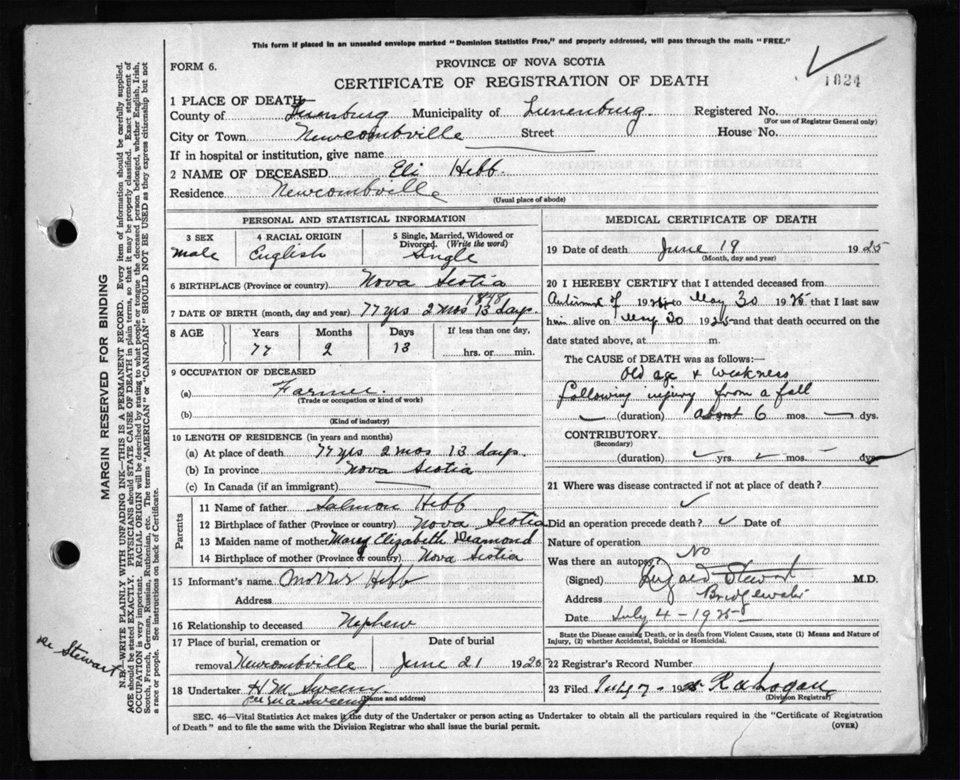 This form if placed in an unsealed envelope marked "Dominion Statistics Free," and properly addressed, will pass through the mails "FREE."
FORM 6.
PROVINCE OF NOVA SCOTIA
CERTIFICATE OF REGISTRATION OF DEATH
1824
1 PLACE OF DEATH
County of Lunenburg Municipality of Lunenburg. Registered No.
(For use of Registrar General only)
City or Town Newcombville Street House No.
If in hospital or institution, give name
2 NAME OF DECEASED Eli Hebb.
Residence Newcombville
(Usual place of abode)
PERSONAL AND STATISTICAL INFORMATION
3 SEX 4 RACIAL ORIGIN 5 Single, Married, Widowed or Divorced. (Write the word)
Male English Single
6 BIRTHPLACE (Province or country) Nova Scotia
1848
7 DATE OF BIRTH (month, day and year) 77 yrs 2 mos 13 days.
8 AGE Years Months Days If less than one day,
77 2 13 hrs. or min.
9 OCCUPATION OF DECEASED
(a) Farmer.
(Trade or occupation or kind of work)
(b)
(Kind of industry)
10 LENGTH OF RESIDENCE (in years and months)
(a) At place of death 77 yrs 2 mos 13 days.
(b) In province Nova Scotia
(c) In Canada (if an immigrant)
Parents
11 Name of father Salmon Hebb
12 Birthplace of father (Province or country) Nova Scotia
13 Maiden name of mother Mary Elizabeth Diamond
14 Birthplace of mother (Province or country) Nova Scotia
15 Informant's name Hebb
Address
16 Relationship to deceased Nephew
17 Place of burial, cremation or Date of burial
removal Newcombville June 21 1925
18 Undertaker H M Sweeny
(Name and address)
MEDICAL CERTIFICATE OF DEATH
19 Date of death June 19 1925
(Month, day and year)
20 I HEREBY CERTIFY that I attended deceased from
Autumn of 192 to May 30 1925 that I last saw
him alive on May 30 1925 and that death occurred on the
date stated above, at m.
The CAUSE OF DEATH was as follows:
Old age & weakness
following injury from a fall
(duration) about 6 mos. dys.
CONTRIBUTORY
(Secondary)
(duration) yrs. mos. dys
21 Where was disease contracted if not at place of death?
Did an operation precede death? Date of
Nature of operation
Was there an autopsy No
(Signed) Stewart M.D.
Address Bridgewater
Date July 4 - 1925
State the Disease causing Death, or in death from Violent Causes, state (1) Means and Nature of
Injury, (2) whether Accidental, Suicidal or Homicidal.
22 Registrar's Record Number
23 Filed July 7
(Division Registrar)
SEC. 46—Vital Statistics Act makes it the duty of the Undertaker or person acting as Undertaker to obtain all the particulars required in the "Certificate of Registration
of Death" and to file the same with the Division Registrar who shall issue the burial permit.
(OVER)
MARGIN RESERVED FOR BINDING
N.B.—WRITE PLAINLY WITH UNFADING INK—THIS IS A PERMANENT RECORD. Every item of information should be carefully supplied.
AGE should be stated EXACTLY. PHYSICIANS should STATE CAUSE OF DEATH in plain terms, so that it may be properly classified. Exact statement of
OCCUPATION is very important. RACIAL ORIGIN will be described by stating to what people or tongue the deceased person belonged, whether English, Irish,
Scotch, French, German, Russian, Ruthenian, etc. The terms "AMERICAN" or "CANADIAN" SHOULD NOT BE USED as they express citizenship but not
a race or people. See instructions on back of Certificate.
Stewart